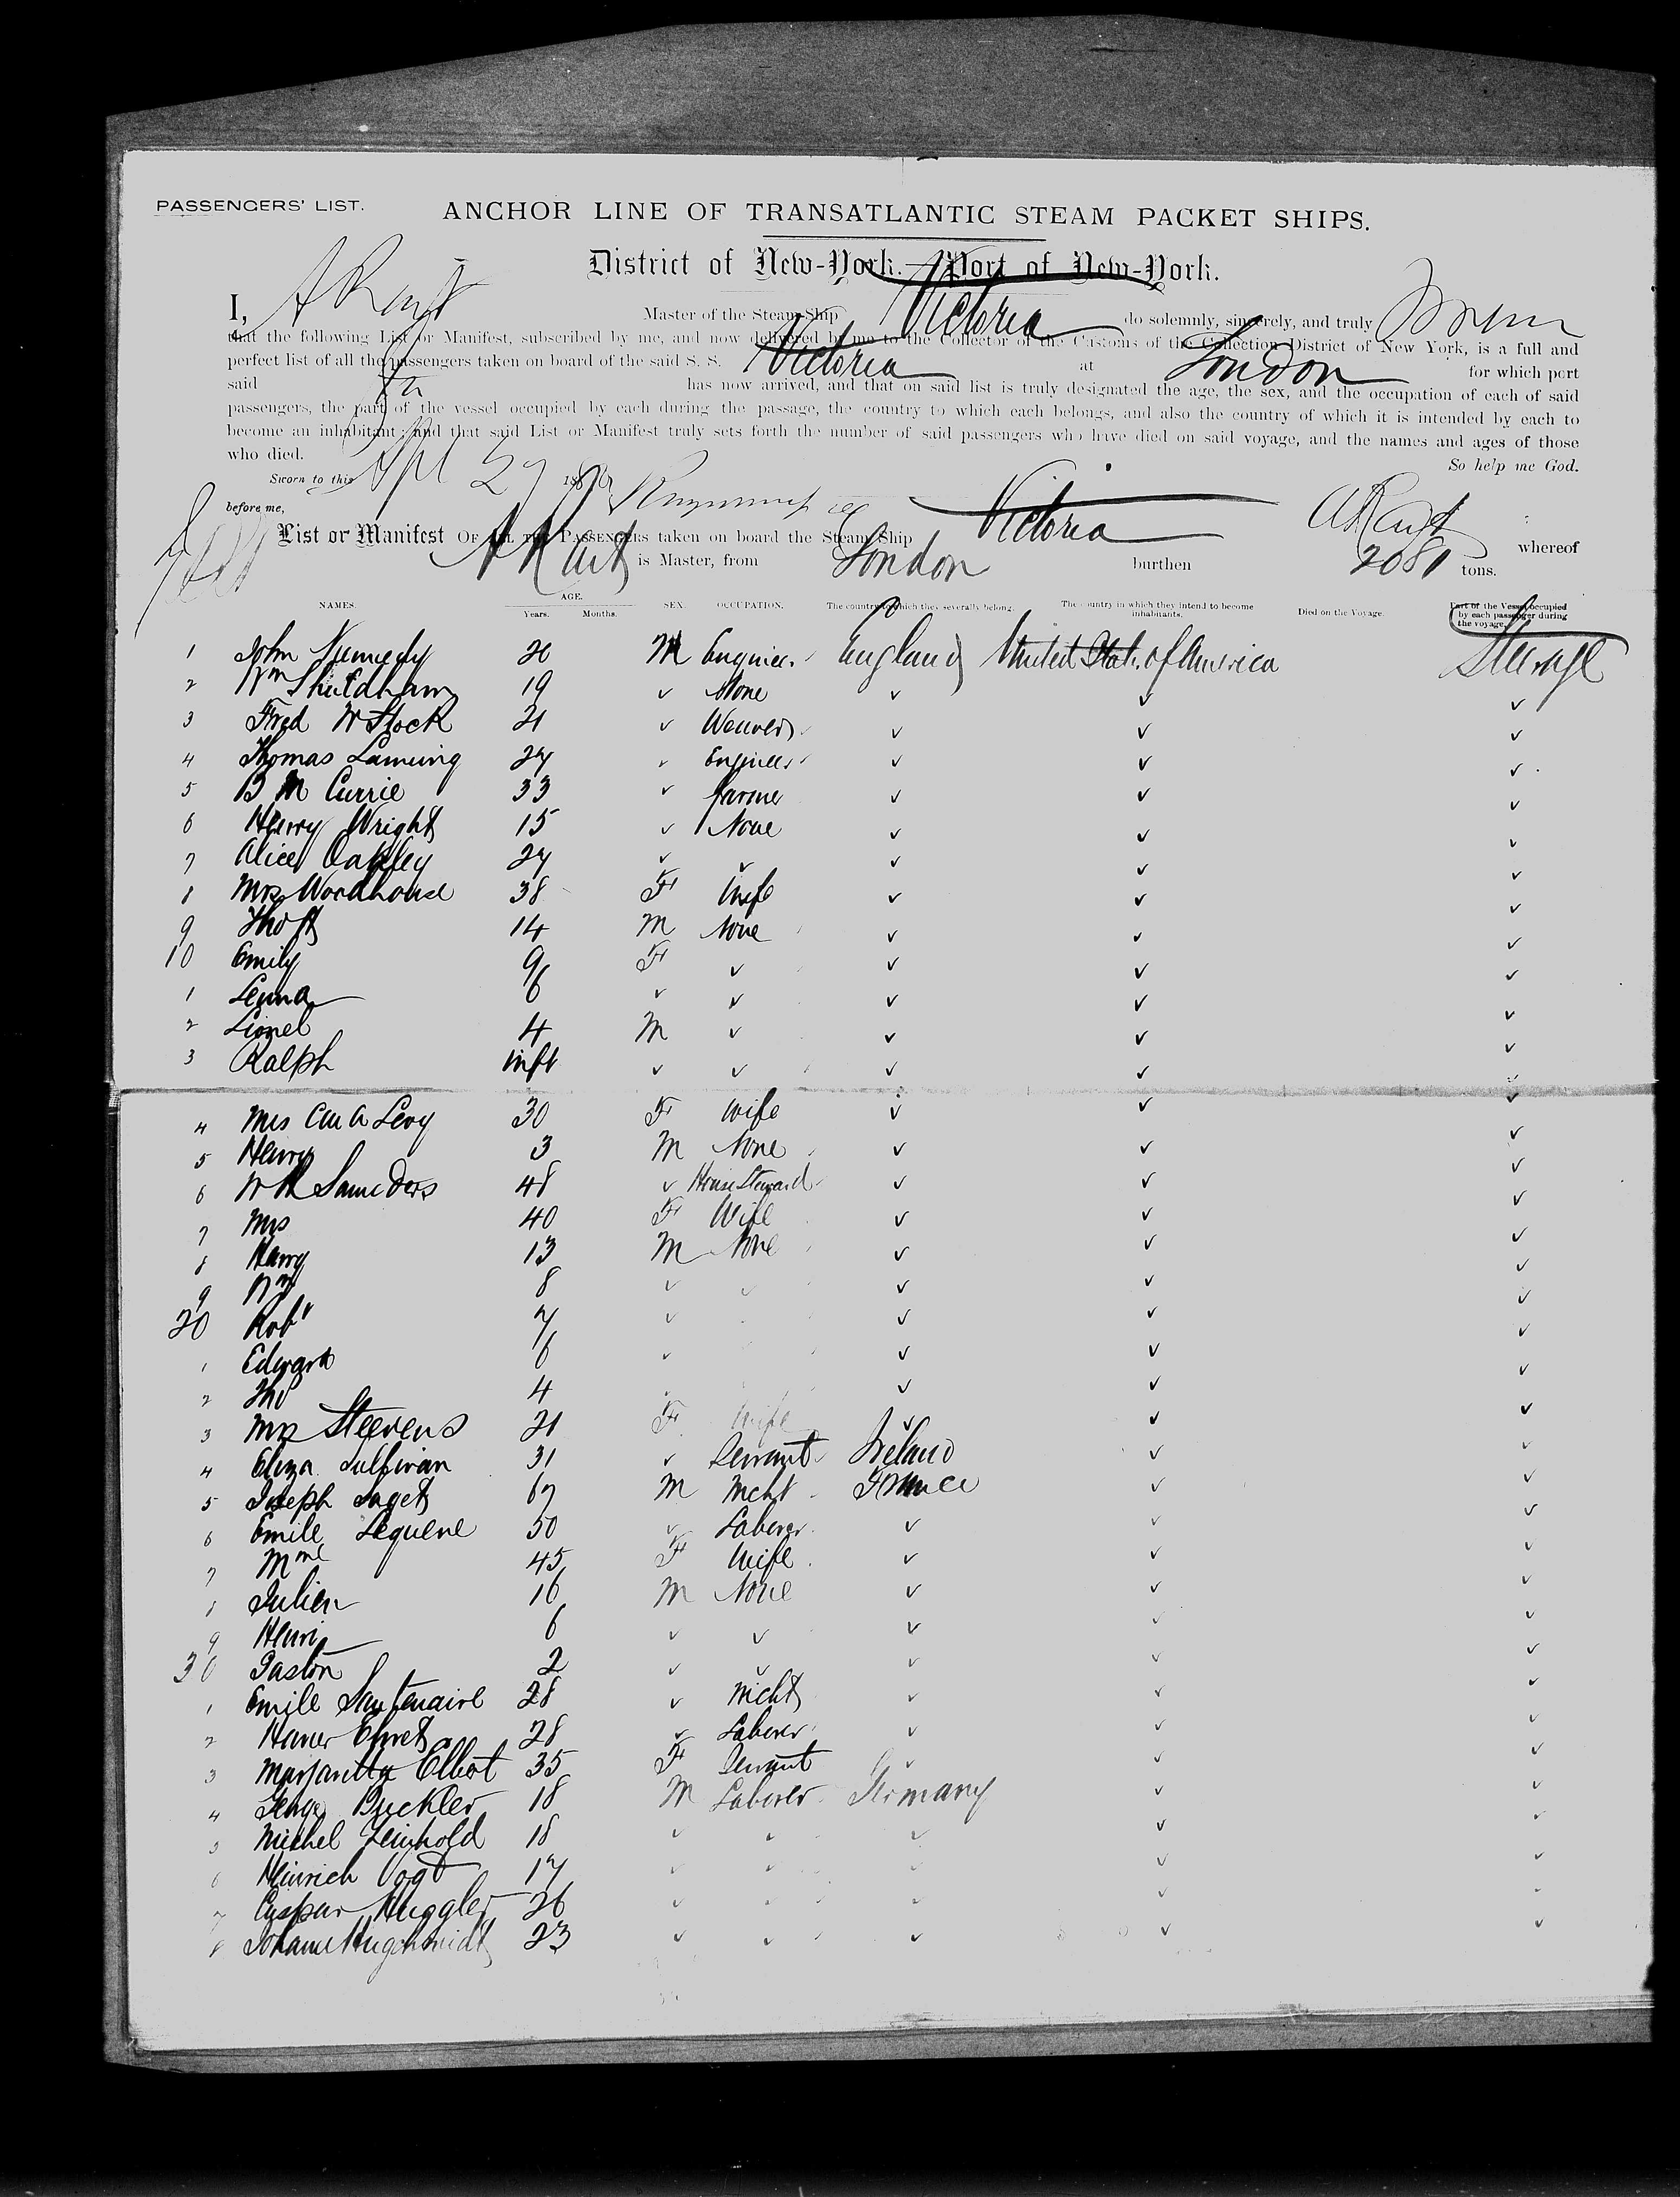 PASSENGERS' LIST.
ANCHOR LINE OF TRANSATLANTIC STEAM PACKET SHIPS.
District of New-York.—Port of New-York.
I, Master of the Steam Ship Victoria do solemnly, sincerely, and truly
that the following List or Manifest, subscribed by me, and now delivered by me to the Collector of the Customs of the Collection District of New York, is a full and
perfect list of all the passengers taken on board of the said S. S. Victoria at London for which port
said has now arrived, and that on said list is truly designated the age, the sex, and the occupation of each of said
passengers, the part of the vessel occupied by each during the passage, the country to which each belongs, and also the country of which it is intended by each to
become an inhabitant; and that said List or Manifest truly sets forth the number of said passengers who have died on said voyage, and the names and ages of those
who died. So help me God.
Sworn to this Apl 27 188
before me,
List or Manifest OF ALL THE PASSENGERS taken on board the Steam Ship Victoria whereof
is Master, from London burthen 2081 tons.
NAMES. AGE. Years. Months. SEX. OCCUPATION. The country to which they severally belong. The country in which they intend to become inhabitants. Died on the Voyage. Part of the Vessel occupied by each passenger during the voyage.
1 John Kennedy 20 M Engineer England United States of America Steerage
2 Wm 19 ✓ None ✓ ✓ ✓
3 Fred W Stock 21 ✓ Weaver ✓ ✓ ✓
4 Thomas Laming 27 ✓ Engineer ✓ ✓ ✓
5 B M Currie 33 ✓ farmer ✓ ✓ ✓
6 Henry Wright 15 ✓ None ✓ ✓ ✓
7 Alice Oakley 27 ✓ ✓ ✓ ✓ ✓
8 Mrs Woodhouse 38 F Wife ✓ ✓ ✓
9 14 M None ✓ ✓ ✓
10 Emily 9 F ✓ ✓ ✓ ✓
1 6 ✓ ✓ ✓ ✓ ✓
2 Lionel 4 M ✓ ✓ ✓ ✓
3 Ralph inft ✓ ✓ ✓ ✓ ✓
4 Mrs Levy 30 F Wife ✓ ✓ ✓
5 Henry 3 M None ✓ ✓ ✓
6 W H Saunders 48 ✓ House Steward ✓ ✓ ✓
7 Mrs 40 F Wife ✓ ✓ ✓
8 Harry 13 M None ✓ ✓ ✓
9 Wm 8 ✓ ✓ ✓ ✓ ✓
20 Robt 7 ✓ ✓ ✓ ✓
1 Edward 6 ✓ ✓ ✓ ✓
2 Tho 4 ✓ ✓ ✓
3 Mrs Steevens 21 F Wife ✓ ✓ ✓
4 Eliza Sullivan 31 ✓ Servant Ireland ✓ ✓
5 Joseph Saget 67 M Mcht France ✓ ✓
6 Emile Lequene 50 ✓ Laborer ✓ ✓ ✓
7 Mme 45 F Wife ✓ ✓ ✓
8 Julien 16 M None ✓ ✓ ✓
9 Henri 6 ✓ ✓ ✓ ✓ ✓
30 Gaston 2 ✓ ✓ ✓ ✓ ✓
1 Emile Santenaire 28 ✓ Mcht ✓ ✓ ✓
2 28 ✓ Laborer ✓ ✓ ✓
3 Margaretta Elbert 35 F Servant ✓ ✓ ✓
4 Buckler 18 M Laborer Germany ✓ ✓
5 Michel 18 ✓ ✓ ✓ ✓ ✓
6 Heinrich Vogt 17 ✓ ✓ ✓ ✓ ✓
7 Caspar Huggler 26 ✓ ✓ ✓ ✓ ✓
8 Johann 23 ✓ ✓ ✓ ✓ ✓